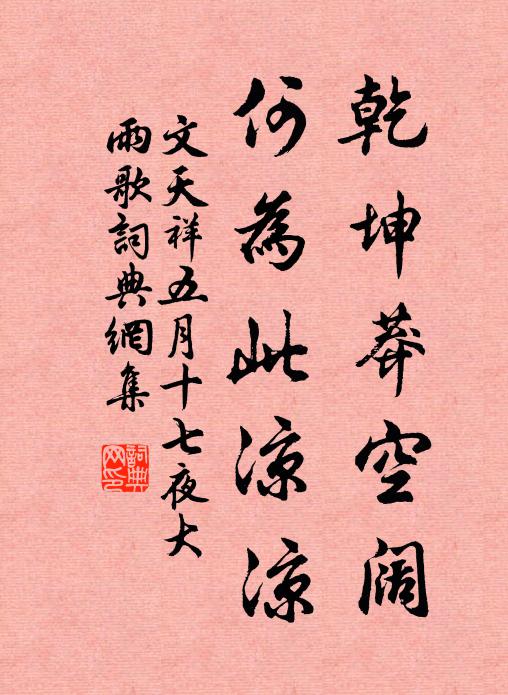 乾坤莽空阔
何為此涼涼
文天祥五月十七夜大
雨歌詞典網集
詞典網印